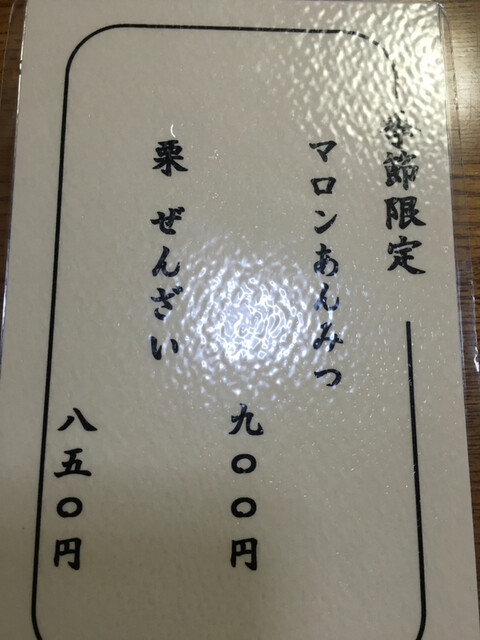 季節限定
マロンあんみつ
九〇〇円
栗 ぜんざい
八五〇円